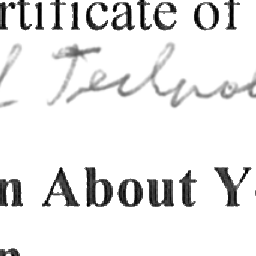 rtificate of
Technolo
n About Y